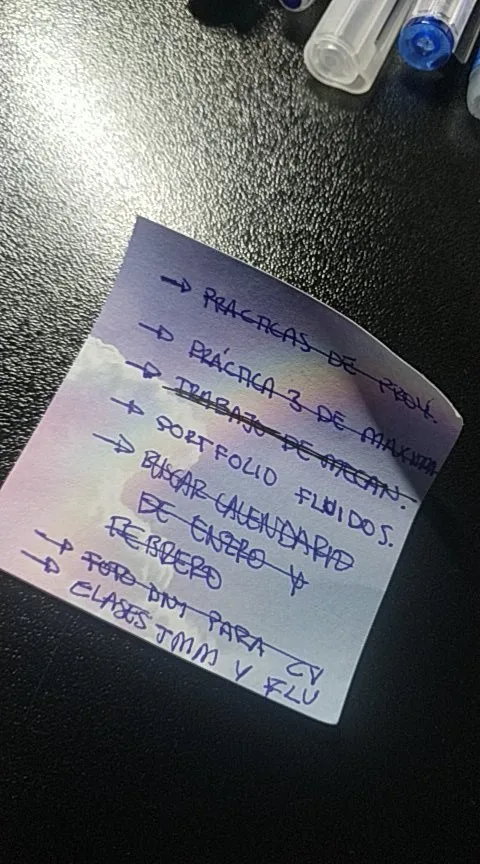 → PRÁCTICAS DE PROY.
→ PRÁCTICA 3 DE
→ TRABAJO DE MECAN.
→ PORTFOLIO FLUIDOS.
→ BUSCAR CALENDARIO
DE ENERO Y
FEBRERO
→ FOTO DNI PARA CV
→ CLASES TMM Y FLU